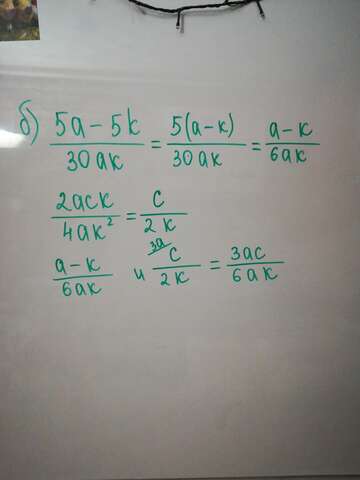 б) (5a - 5k)/(30ak) = (5(a - k))/(30ak) = (a - k)/(6ak)
(2ack)/(4ak²) = c/(2k)
(a - k)/(6ak) и 3a/ c/(2k) = (3ac)/(6ak)